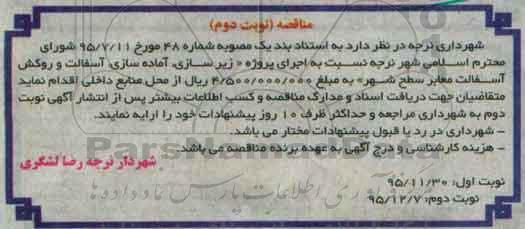 مناقصه (نوبت دوم)
شهرداری نرجه در نظر دارد به استناد بند یک مصوبه شماره ۴۸ مورخ ۹۵/۷/۱۱ شورای
محترم اسلامی شهر نرجه نسبت به اجرای پروژه « زیر سازی، آماده سازی، آسفالت و روکش
آسفالت معابر سطح شهر» به مبلغ ۴/۵۰۰/۰۰۰/۰۰۰ ریال از محل منابع داخلی اقدام نماید
متقاضیان جهت دریافت اسناد و مدارک مناقصه و کسب اطلاعات بیشتر پس از انتشار آگهی نوبت
دوم به شهرداری مراجعه و حداکثر ظرف ۱۰ روز پیشنهادات خود را ارایه نمایند.
- شهرداری در رد یا قبول پیشنهادات مختار می باشد.
- هزینه کارشناسی و درج آگهی به عهده برنده مناقصه می باشد.
شهردار نرجه رضا لشگری
نوبت اول: ۹۵/۱۱/۳۰
نوبت دوم: ۹۵/۱۲/۷